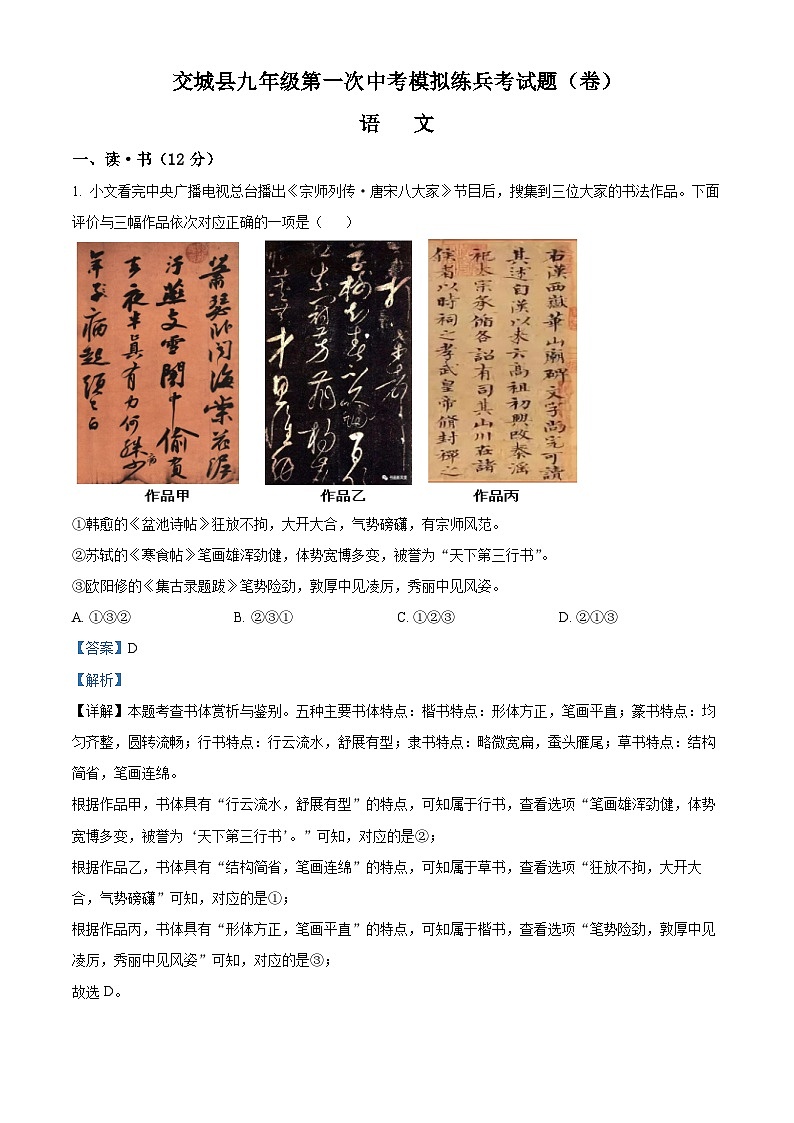 交城县九年级第一次中考模拟练兵考试题（卷）
语 文
一、读·书（12 分）
1. 小文看完中央广播电视总台播出《宗师列传·唐宋八大家》节目后，搜集到三位大家的书法作品。下面
评价与三幅作品依次对应正确的一项是（ ）
萧瑟卧闻海棠花泥
污燕支雪闇中偷负
去夜半真有力何殊少
年子病起须已白
右汉西岳华山庙碑文字尚完可读
其述自汉以来云高祖初兴改秦淫
祀太宗承循各诏有司其山川在诸
侯者以时祠之孝武皇帝修封禅之
作品甲
作品乙
作品丙
①韩愈的《盆池诗帖》狂放不拘，大开大合，气势磅礴，有宗师风范。
②苏轼的《寒食帖》笔画雄浑劲健，体势宽博多变，被誉为“天下第三行书”。
③欧阳修的《集古录题跋》笔势险劲，敦厚中见凌厉，秀丽中见风姿。
A. ①③② B. ②③① C. ①②③ D. ②①③
【答案】D
【解析】
【详解】本题考查书体赏析与鉴别。五种主要书体特点：楷书特点：形体方正，笔画平直；篆书特点：均
匀齐整，圆转流畅；行书特点：行云流水，舒展有型；隶书特点：略微宽扁，蚕头雁尾；草书特点：结构
简省，笔画连绵。
根据作品甲，书体具有“行云流水，舒展有型”的特点，可知属于行书，查看选项“笔画雄浑劲健，体势
宽博多变，被誉为‘天下第三行书’。”可知，对应的是②；
根据作品乙，书体具有“结构简省，笔画连绵”的特点，可知属于草书，查看选项“狂放不拘，大开大
合，气势磅礴”可知，对应的是①；
根据作品丙，书体具有“形体方正，笔画平直”的特点，可知属于楷书，查看选项“笔势险劲，敦厚中见
凌厉，秀丽中见风姿”可知，对应的是③；
故选 D。